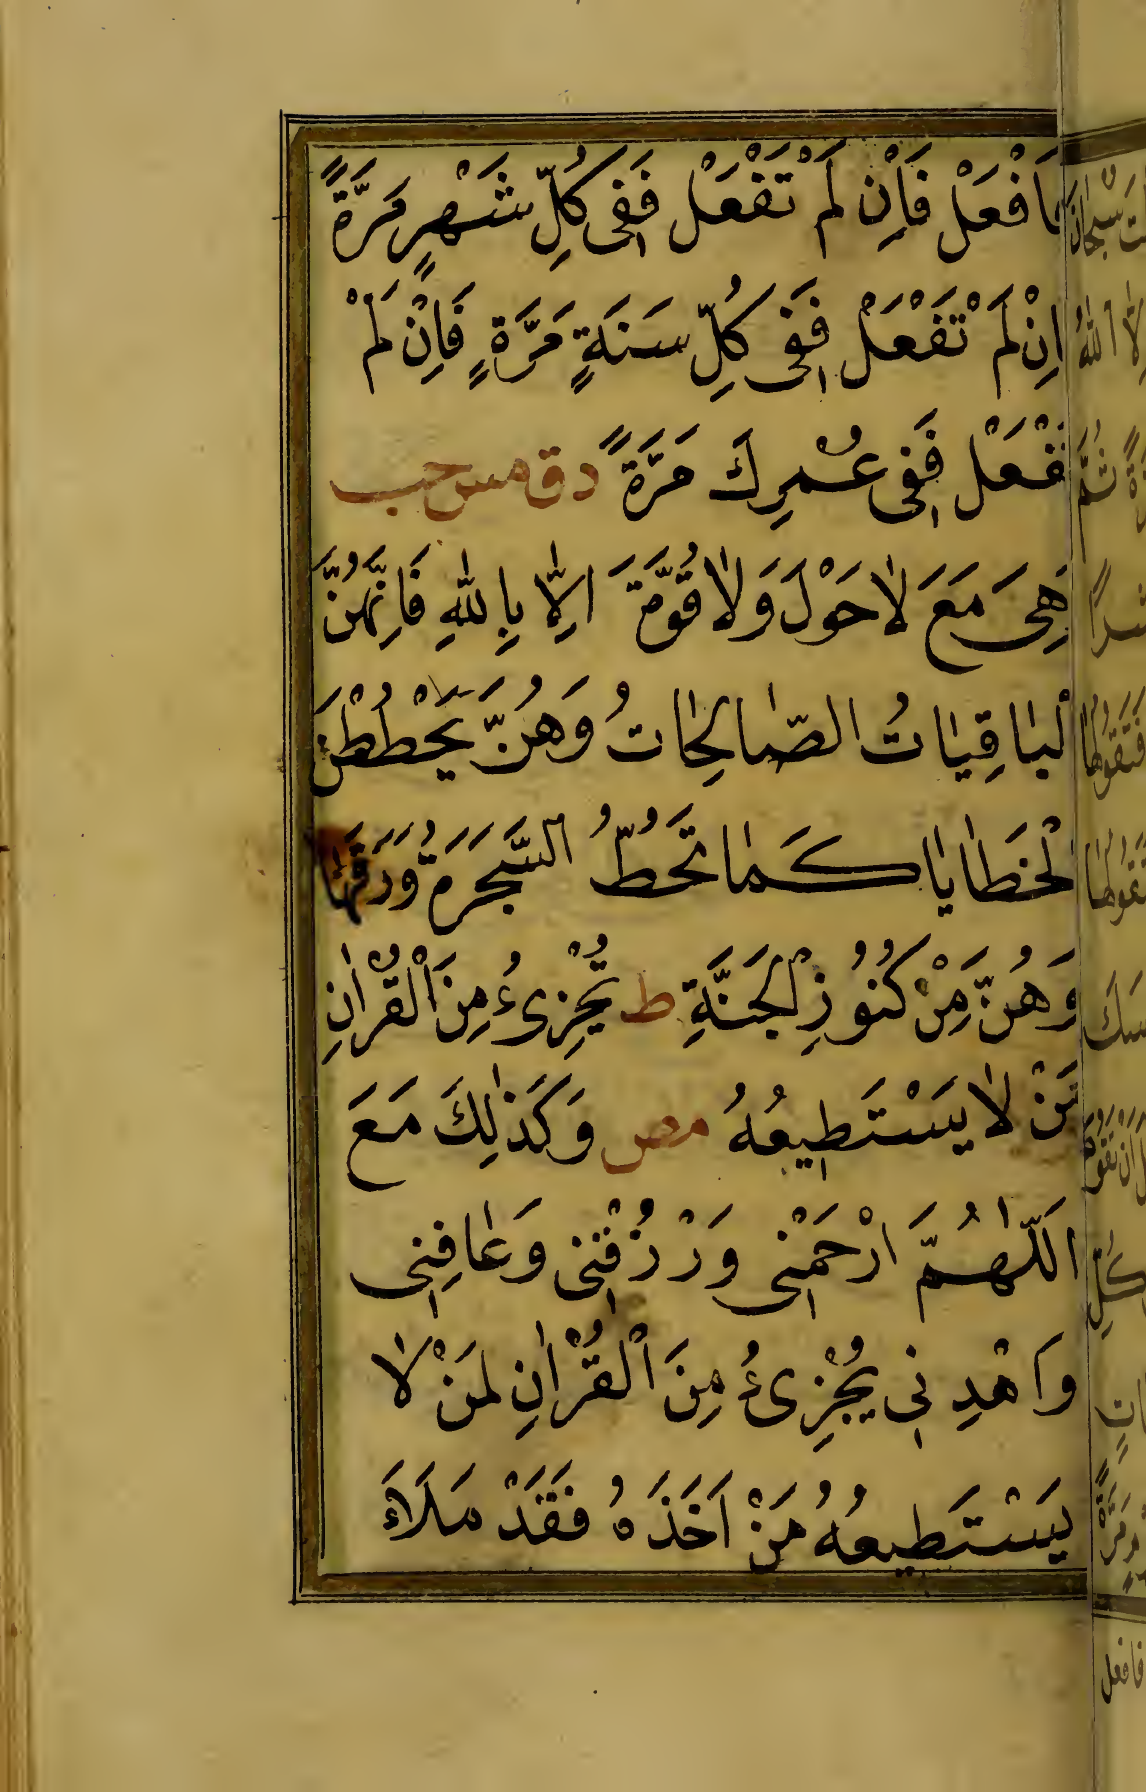 فَافْعَلْ فَاِنْ لَمْ تَفْعَلْ فَفِى كُلِّ شَهْرٍ مَرَّةً
اِنْ لَمْ تَفْعَلْ فَفِى كُلِّ سَنَةٍ مَرَّةٍ فَاِنْ لَمْ
تَفْعَلْ فَفِى عُمْرِكَ مَرَّةً د ق مس حب
هِىَ مَعَ لَا حَوْلَ وَلَا قُوَّةَ اِلَّا بِاللّٰهِ فَاِنَّهُنَّ
لْبَاقِيَاتُ الصَّالِحَاتُ وَهُنَّ يَحْطُطْنَ
لْخَطَايَا كَمَا تَحُطُّ الشَّجَرَةُ وَرَقَهَا
وَهُنَّ مِنْ كُنُوزِ الْجَنَّةِ ط تُجْزِىءُ مِنَ الْقُرْاٰنِ
مَنْ لَا يَسْتَطِيعُهُ مص وَكَذٰلِكَ مَعَ
اَللّٰهُمَّ ارْحَمْنِى وَرْزُقْنِى وَعَافِنِى
وَاهْدِنِى يُجْزِىءُ مِنَ الْقُرْاٰنِ لِمَنْ لَا
يَسْتَطِيعُهُ مَنْ اَخَذَهُ فَقَدْ مَلَاَءَ
فافعل